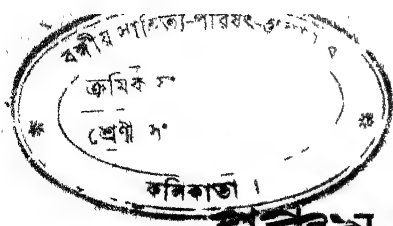 বঙ্গীয় সাহিত্য-পরিষৎ-
ক্রমিক সং
শ্রেণী সং
কলিকাতা ।